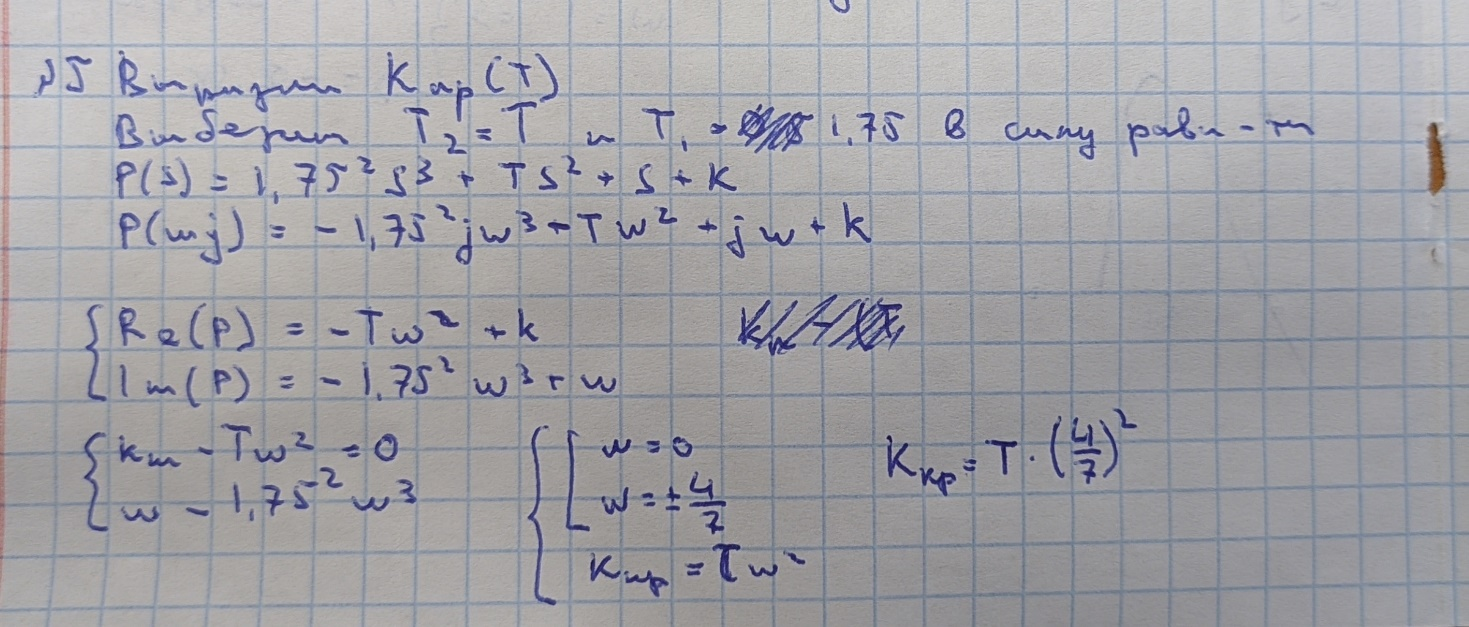 №5 Выразим Kкр(T)
Выберем T₂ = T и T₁ = 1,75 в силу равн-ти
P(s) = 1,75² s³ + Ts² + s + k
P(wj) = -1,75² jw³ - Tw² + jw + k
{ Re(P) = -Tw² + k
{ Im(P) = -1,75² w³ + w
{ [ w = 0
{ kкр - Tw² = 0
Kкр = T · (4/7)²
{ w - 1,75² w³
[ w = ± 4/7
Kкр = Tw²